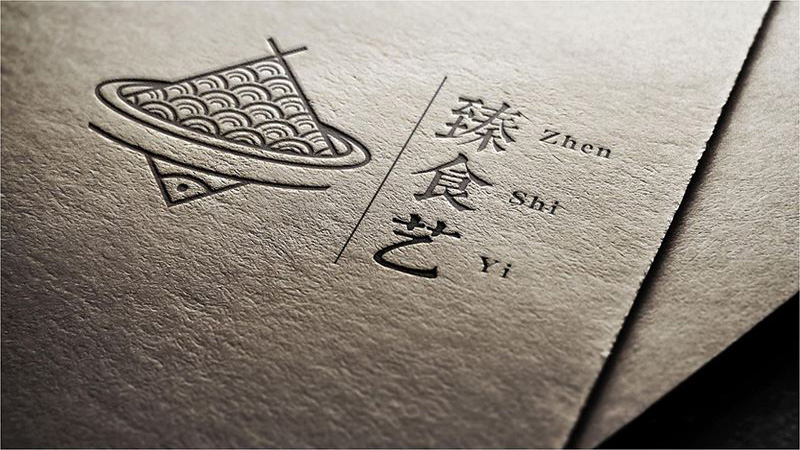 臻 Zhen
食 Shi
艺 Yi